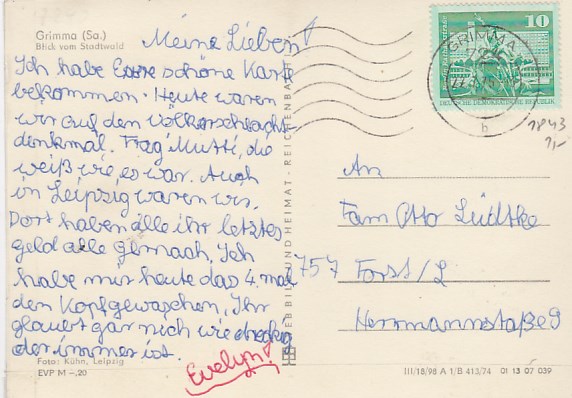 Grimma (Sa.)
Blick vom Stadtwald
Meine Lieben!
Ich habe Eure schöne Karte
bekommen. Heute waren
wir auf den Völkerschlacht
denkmal. Frag Mutti, die
weiß wie es war. Auch
in Leipzig waren wir.
Dort haben alle ihr letztes
geld alle gemach. Ich
habe mir heute das 4. mal
den Kopf gewaschen. Ihr
glaubt gar nich wie dreckig
der immer ist.
Evelyn!
Foto: Kühn, Leipzig
EVP M –,20
VEB BILD UND HEIMAT · REICHENBACH
GRIMMA
b
10
DEUTSCHE DEMOKRATISCHE REPUBLIK
1843
1,-
An
Fam Otto Lüdtke
757 Forst/L
Herrmannstaße 9
III/18/98 A 1/B 413/74 01 13 07 039